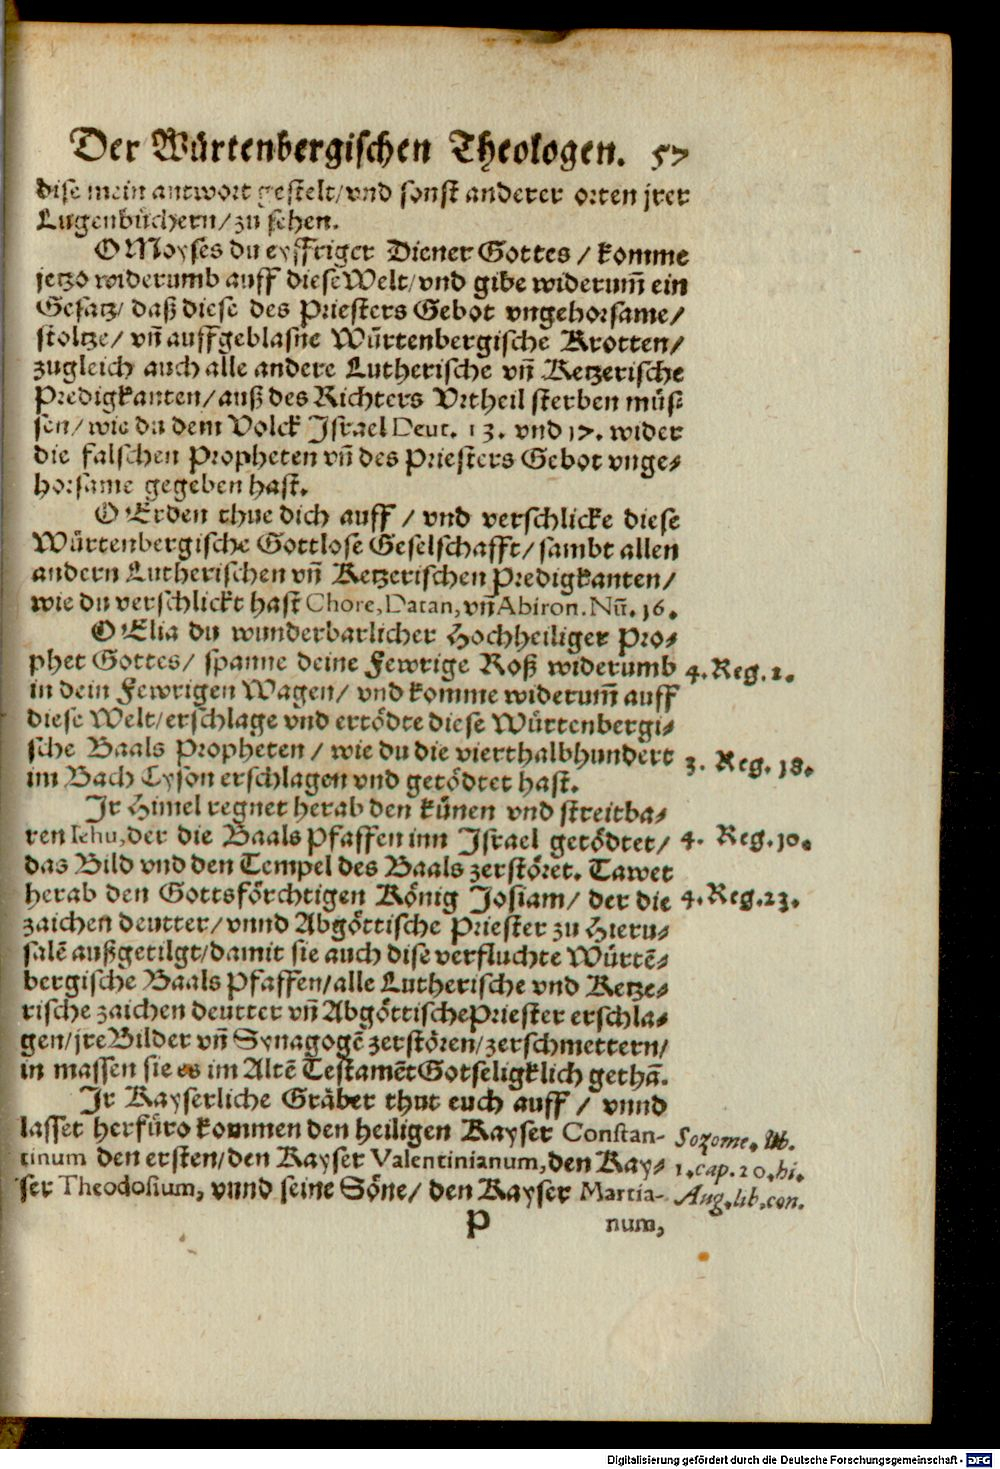 Der Würtenbergischen Theologen. 57
dise mein antwort gestelt/ vnd sonst anderer orten jrer
Lugenbüchern/ zu sehen.
O Moyses du eyffriger Diener Gottes / komme
jetzo widerumb auff diese Welt/ vnd gibe widerum̃ ein
Gesatz/ daß diese des Priesters Gebot vngehorsame/
stoltze/ vñ auffgeblasne Würtenbergische Krotten/
zugleich auch alle andere Lutherische vñ Ketzerische
Predigkanten/ auß des Richters Vrtheil sterben müs⸗
sen/ wie du dem Volck Jsrael Deut. 13. vnd 17. wider
die falschen Propheten vñ des Priesters Gebot vnge⸗
horsame gegeben hast.
O Erden thue dich auff / vnd verschlicke diese
Würtenbergische Gottlose Geselschafft/ sambt allen
andern Lutherischen vñ Ketzerischen Predigkanten/
wie du verschlickt hast Chore, Datan, vñ Abiron. Nũ. 16.
O Elia du wunderbarlicher Hochheiliger Pro⸗
phet Gottes/ spanne deine Fewrige Roß widerumb 4. Reg. 2.
in dein Fewrigen Wagen/ vnd komme widerum̃ auff
diese Welt/ erschlage vnd ertödte diese Würtenbergi⸗
sche Baals Propheten / wie du die vierthalbhundert 3. Reg. 18.
im Bach Cyson erschlagen vnd getödtet hast.
Jr Himel regnet herab den künen vnd streitba⸗
ren Iehu, der die Baals Pfaffen inn Jsrael getödtet/ 4. Reg. 10.
das Bild vnd den Tempel des Baals zerstöret. Tawet
herab den Gottsförchtigen König Josiam/ der die 4. Reg. 23.
zaichen deutter/ vnnd Abgöttische Priester zu Hieru⸗
salẽ außgetilgt/ damit sie auch dise verfluchte Würtẽ⸗
bergische Baals Pfaffen/ alle Lutherische vnd Ketze⸗
rische zaichen deutter vñ Abgöttische Priester erschla⸗
gen/ jre Bilder vñ Synagogẽ zerstören/ zerschmettern/
in massen sie es im Altẽ Testamẽt Gotseligklich gethã.
Jr Kayserliche Gräber thut euch auff / vnnd
lasset herfüro kommen den heiligen Kayser Constan- Sozome. lib.
tinum den ersten/ den Kayser Valentinianum, den Kay⸗ 1. cap. 20. hi.
ser Theodosium, vnnd seine Söne/ den Kayser Martia- Aug. lib. con.
P num,
Digitalisierung gefördert durch die Deutsche Forschungsgemeinschaft - DFG